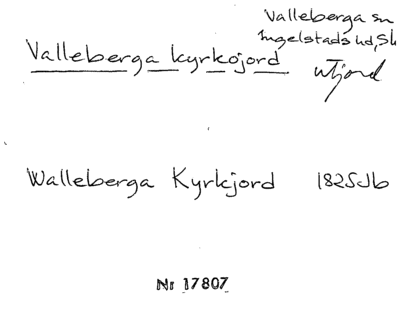 Valleberga sn
Ingelstads hd, Sk
Valleberga kyrkojord
utjord
Walleberga Kyrkjord 1825 Jb
Nr 17807